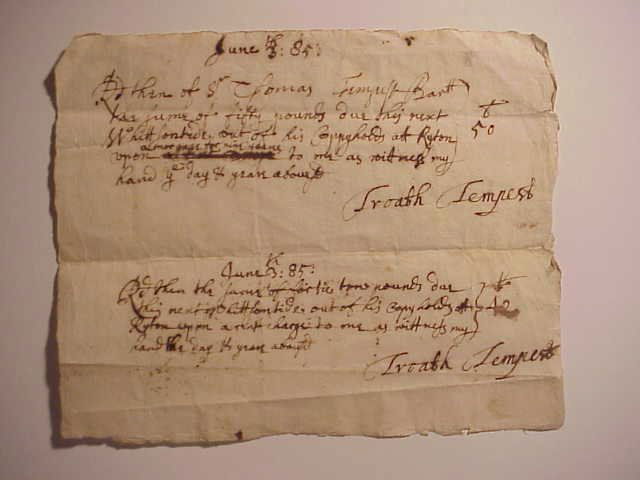 June th 3: 85:
Rd then of Sr Thomas Tempest Bartt
the sume of fifty pounds due this next
Whittsontide out of his Copyholds att Ryton
50
upon to me as wittness my
hand ye day & yeare aboves
Troath Tempest
June th 3: 85:
Rd then the sume of pounds due
this next Whittsontide out of his Copyholds att
Ryton upon a rent charge to me as wittness my
hand the day & yeare aboves
Troath Tempest